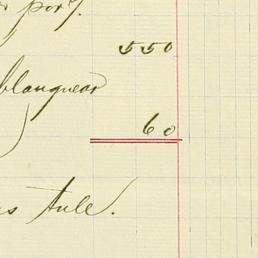 por
550
blanquear
60
tule.